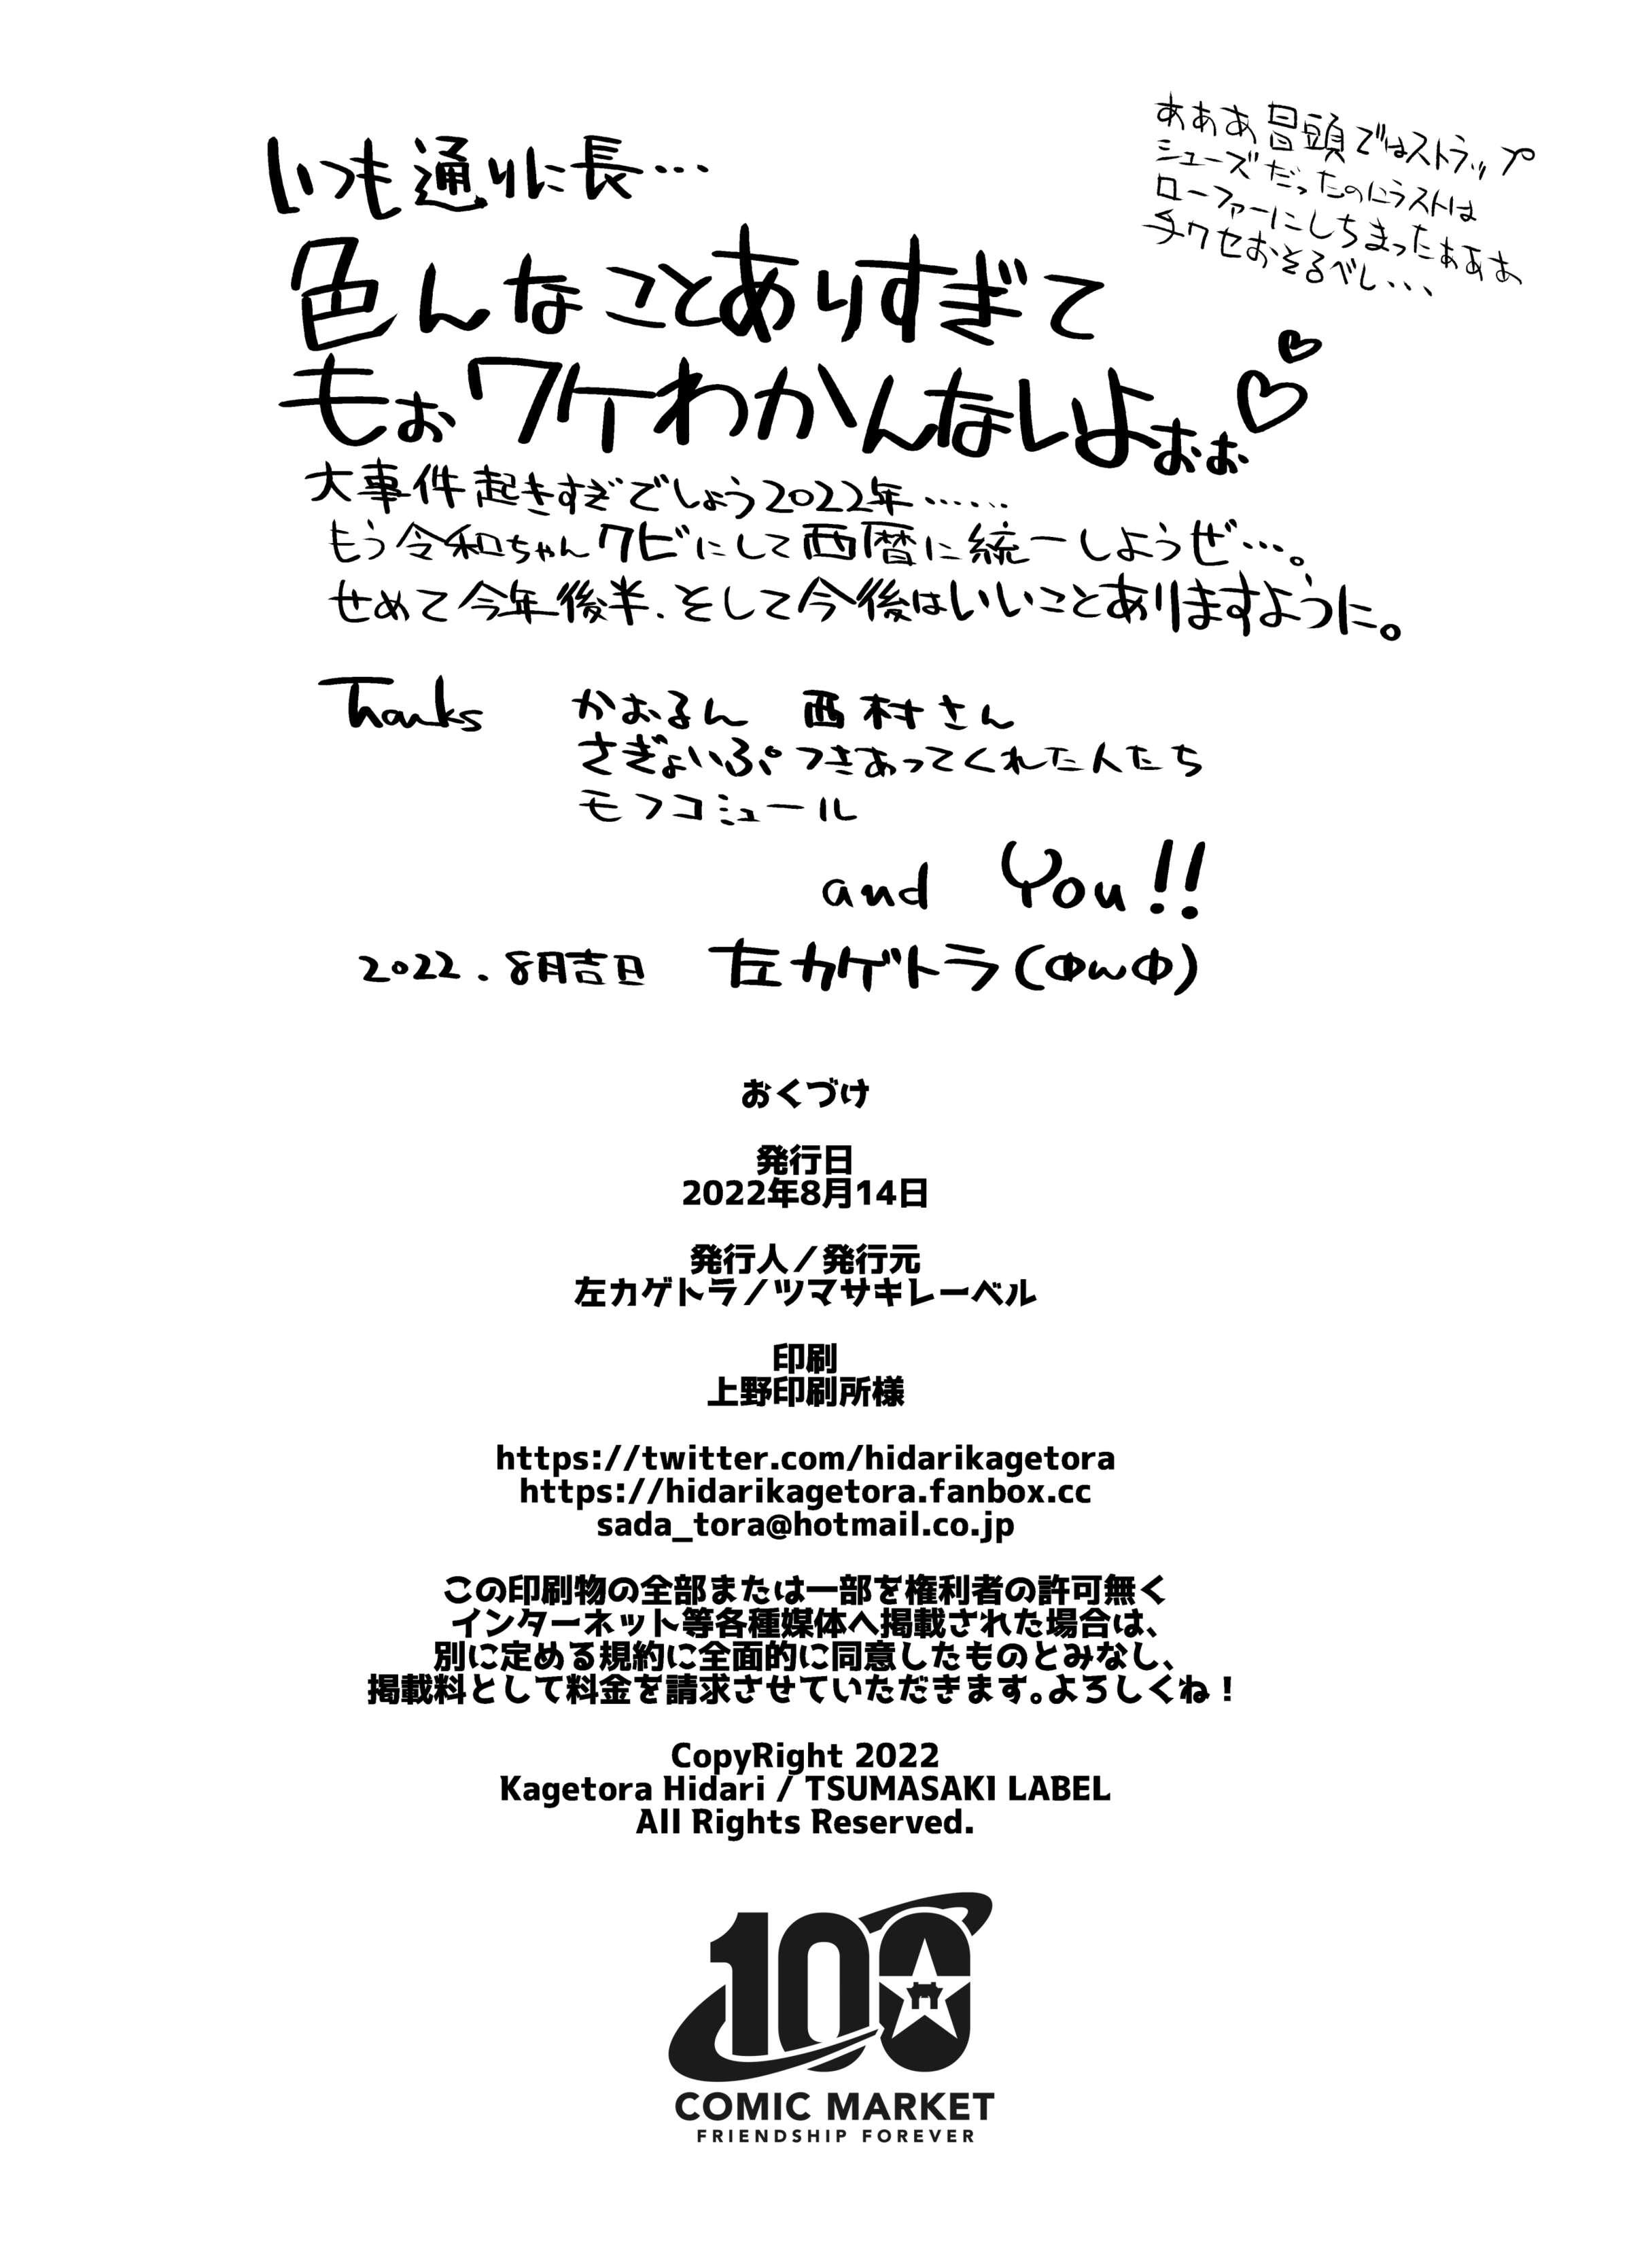 いつも通りに長…
あああ冒頭ではストラップ
シューズだったのにラストは
ローファーにしちまったぁああ
手クセおそるべし...
色んなことありすぎて
もぉワケわかんなしよぉぉ♡♡
大事件起きすぎでしょう2022年……
もう令和ちゃんクビにして西暦に統一しようぜ…。
せめて今年後半、そして今後はいいことありますように。
Thanks かおるん 西村さん
さぎょいぷつきあってくれた人たち
モフコミュール
and You!!
2022.8月吉日 左カゲトラ(ΦωΦ)
おくづけ
発行日
2022年8月14日
発行人／発行元
左カゲトラ／ツマサキレーベル
印刷
上野印刷所様
https://twitter.com/hidarikagetora
https://hidarikagetora.fanbox.cc
sada_tora@hotmail.co.jp
この印刷物の全部または一部を権利者の許可無く
インターネット等各種媒体へ掲載された場合は、
別に定める規約に全面的に同意したものとみなし、
掲載料として料金を請求させていただきます。よろしくね！
CopyRight 2022
Kagetora Hidari / TSUMASAKI LABEL
All Rights Reserved.
100
COMIC MARKET
FRIENDSHIP FOREVER